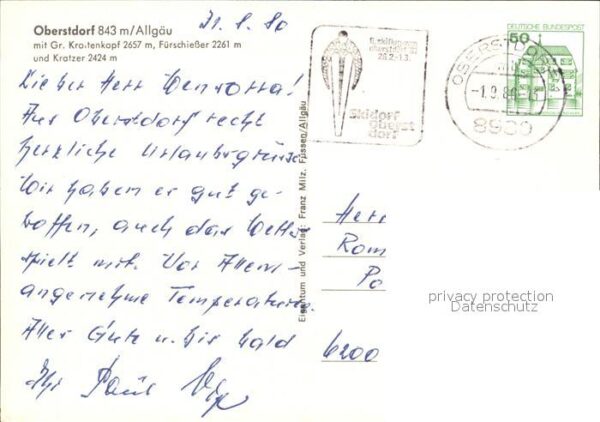 Oberstdorf 843 m/Allgäu
mit Gr. Krottenkopf 2657 m, Fürschießer 2261 m
und Kratzer 2424 m
31.8.80
Lieber Herr
Aus Oberstdorf recht
herzliche Urlaubsgrüsse
Wir haben es gut ge-
troffen, auch das Wetter
spielt mit. Vor Allem
angenehme Temperaturen.
Alles Gute u. bis bald
Ihr Paul
Eigentum und Verlag: Franz Milz, Füssen/Allgäu
28.2.-1.3.
Skidorf
Oberst
dorf
OBERSTDORF
-1.9.80
8980
DEUTSCHE BUNDESPOST
50
Herr
Rom
Po
6200
privacy protection
Datenschutz